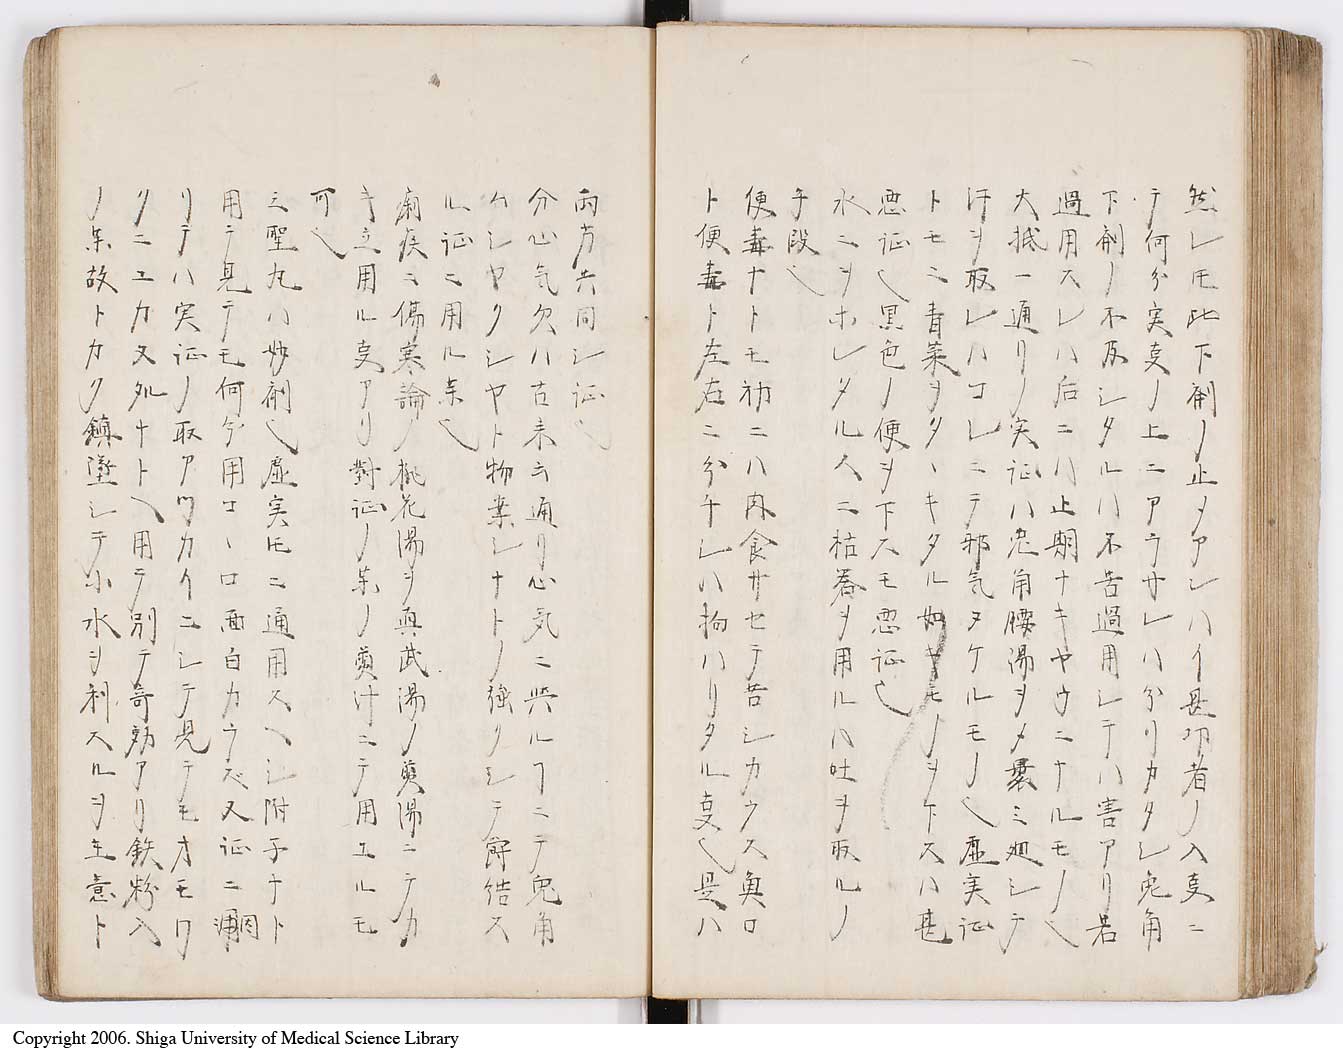 然レ𪜈此下剤ノ止メアンハイ甚功者ノ入叓ニ
テ何分実叓ノ上ニアラサレハ分リカタシ兎角
下剤ノ不及シタルハ不苦過用シテハ害アリ若
過用スレハ后ニハ止期ナキヤウニナルモノ也
大抵一通リノ実証ハ兎角腰湯ヲメ裏ミ廻シテ
汗ヲ取レハコレニテ邪気ヌケルモノ也虚実証
トモニ青菜ヲタヽキタル如キモノヲ下スハ甚
悪証也黒色ノ便ヲ下スモ悪証也
水ニヲホレタル人ニ枯蕃ヲ用ルハ吐ヲ取ルノ
手段也
便毒ナトモ初ニハ肉食サセテ苦シカラス奥ロ
ト便毒ト左右ニ分チシハ拘ハリタル叓也是ハ
両方共同シ証也
分心気欠ハ古来云通リ心気ニ與ルヿニテ兎角
ムシヤクシヤト物業シナトノ強クシテ欝結ス
ル証ニ用ル茱也
痢疾ニ傷寒論ノ桃花湯ヲ真武湯ノ煎湯ニテカ
キ立用ル叓アリ對证ノ茱ノ煎汁ニテ用ユルモ
可也
三聖丸ハ妙剤也虚実𪜈ニ通用スヘシ附子ナト
用テ見テモ何分用ユヽロ面白カラズ又证ニ因
リテハ実证ノ取アツカイニシテ見テモオモワ
クニユカヌ処ナトヘ用テ別テ奇効アリ鉄粉入
ノ茱故トカク鎮墜シテ小水ヲ利スルヲ主意ト
Copyright 2006. Shiga University of Medical Science Library